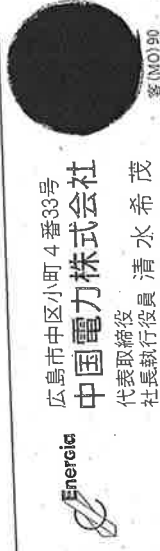 Energia
広島市中区小町4番33号
中国電力株式会社
代表取締役
社長執行役員 清水希茂
客(MO)90